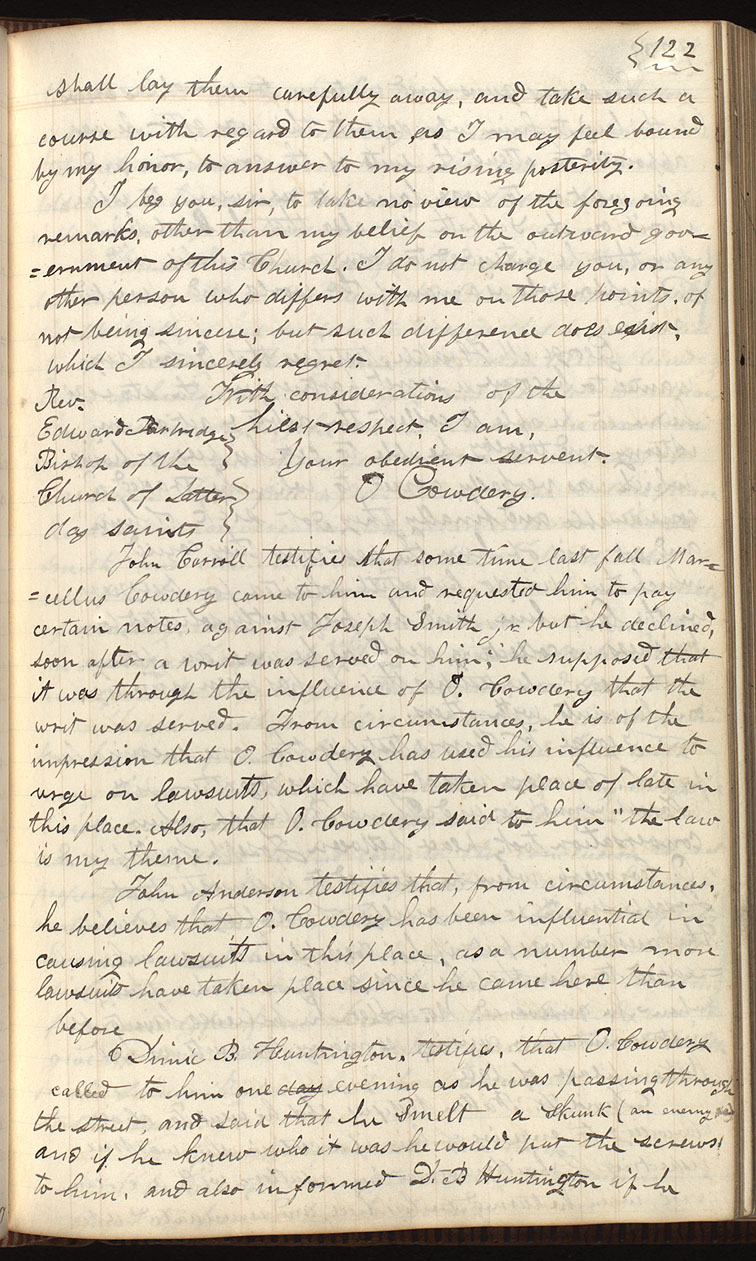 122
shall lay them carefully away, and take such a
course with regard to them, as I may feel bound
by my honor, to answer to my rising posterity.
I beg you, sir, to take no view of the foregoing
remarks, other than my belief on the outward gov=
=ernment of this Church. I do not charge you, or any
other person who differs with me on those points, of
not being sincere; but such difference does exist,
which I sincerely regret.
Rev. With considerations of the
Edward Partridge hiest respect, I am,
Bishop of the Your obedient servent.
Church of Latter O Cowdery.
day saints
John Corrill testifies that some time last fall Mar=
=cellus Cowdery came to him and requested him to pay
certain notes, against Joseph Smith jr but he declined,
soon after a writ was served on him; he supposed that
it was through the influence of O. Cowdery that the
writ was served. From circumstances, he is of the
impression that O. Cowdery has used his influence to
urge on lawsuits, which have taken place of late in
this place. Also, that O. Cowdery said to him "the law
is my theme.
John Anderson testifies that, from circumstances,
he believes that O. Cowdery has been influential in
causing lawsuits in this place, as a number more
lawsuits have taken place since he came here than
before
Dimic B. Huntington, testifies, that O. Cowdery
called to him one day evening as he was passing through
the street, and said that he Smelt a Skunk (an enemy
and if he knew who it was he would put the screws
to him, and also informed D. B Huntington if he